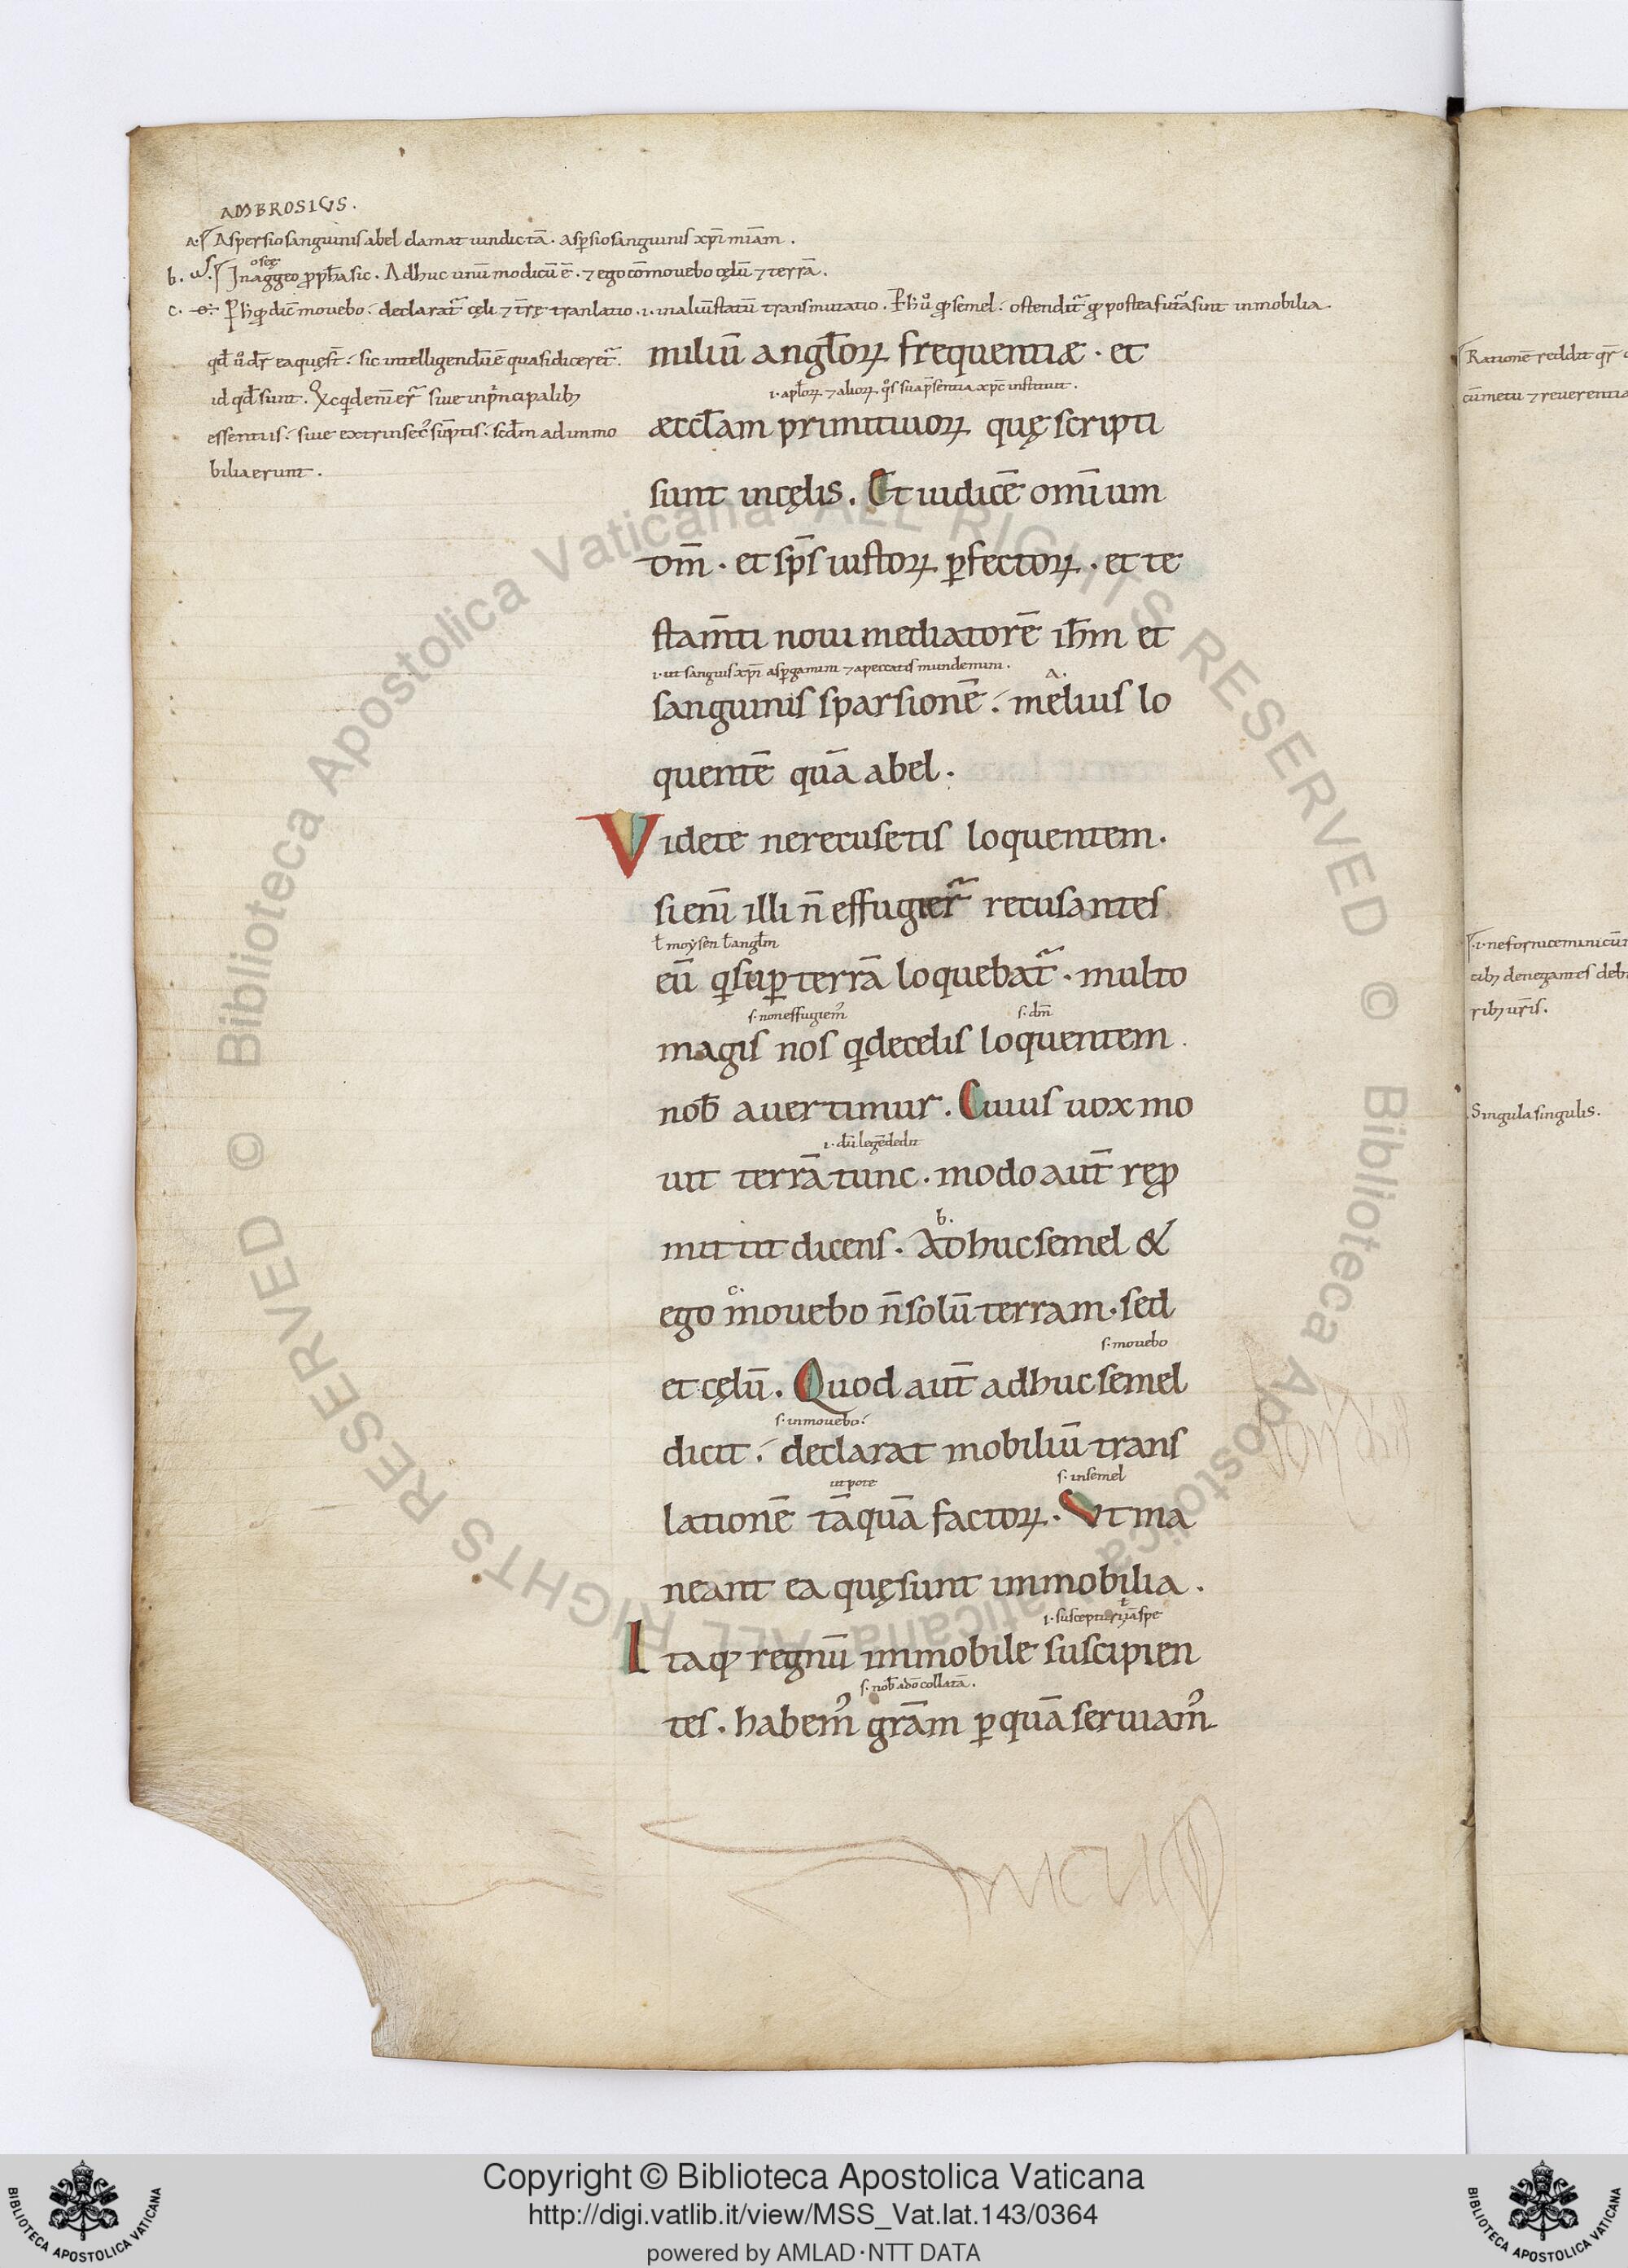 AMBROSIUS.
a. Aspersio sanguinis abel clamat uindictā. aspersio sanguinis xp̄i mīam.
osęę
b. In aggeo ꝓph̄a sic. Adhuc unū modicū ē. ⁊ ego cōmouebo cęlū ⁊ terrā.
c. P̱ h̄ qd̄ dic̄ mouebo. declarat᷑ cęli ⁊ t̄rę tranlatio .i. in aliū statū transmutatio. P̱ h̄ ů ꝙ semel. ostendit᷑ ꝙ postea futa sint inmobilia
qd̄ ů dr̄ ea quę st̄. sic intelligendū ē quasi diceret᷑.
id qd̄ sunt.
essentiis. siue extrinsecꝰ sūptis. scdm ad inmo
bilia erunt.
miliū angl̄oꝝ frequentiæ. et
.i. apl̄oꝝ ⁊ alioꝝ q̊s sua p̄sentia xp̄c instituit.
æccl̄am primitiuoꝝ quę scripti
sunt in cęlis. Et iudicē om̄ium
dm̄. et sp̄s iustoꝝ ꝑfectoꝝ. et te
stam̄ti noui mediatorē ih̄m et
.i. ut sanguis xp̄i aspergamur ⁊ a peccatis mundemur.
a.
sanguinis sparsionē. melius lo
quentē quā abel.
Videte ne recusetis loquentem.
si enī illi n̄ effuger᷑ recusantes
ł moysen ł angl̄m
eū q̄ suꝑ terrā loquebat᷑. multo
s. non effugiemꝰ
s. dm̄
magis nos q̄ de celis loquentem
nob̄ auertimur. Cuius uox mo
.i. dū legē dedit
uit terrā tunc. modo aut̄ reꝓ
b.
mittit dicens. Adhuc semel &
c.
ego mouebo n̄ solū terram. sed
s. mouebo
et cęlū. Quod aut̄ adhuc semel
s. in mouebo.
dicit. declarat mobiliū trans
utpote
s. in semel
lationē tāquā factoꝝ. Ut ma
neant ea quę sunt immobilia.
Itaqꝫ regnū immobile suscipien
s. nob̄ a dō collatā.
tes. habemꝰ grām ꝑ quā seruiamꝰ
Rationē reddit qr̄
cū metu ⁊ reuerentia
.i. ne fornicemini cū
tibꝫ denegantes deb
ribꝫ ur̄is.
Singula singulis.
© Biblioteca Apostolica Vaticana ALL RIGHTS RESERVED
© Biblioteca Apostolica Vaticana ALL RIGHTS RESERVED
Copyright © Biblioteca Apostolica Vaticana
http://digi.vatlib.it/view/MSS_Vat.lat.143/0364
powered by AMLAD·NTT DATA
BIBLIOTECA APOSTOLICA VATICANA
BIBLIOTECA APOSTOLICA VATICANA